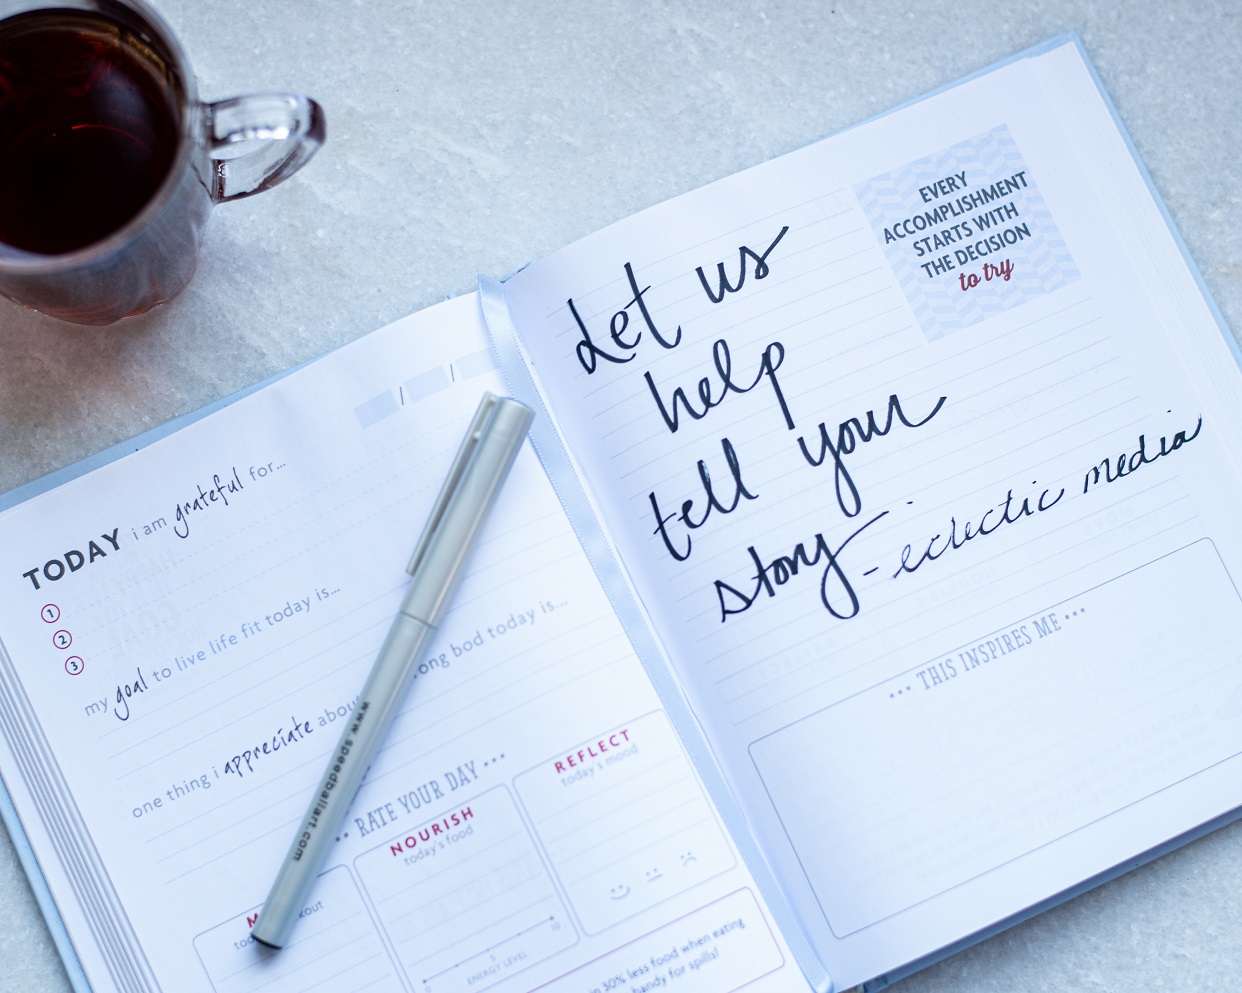 TODAY i am grateful for...
1
2
3
my goal to live life fit today is...
one thing i appreciate about ong bod today is...
••• RATE YOUR DAY •••
NOURISH
today's food
ENERGY LEVEL
0 5 10
REFLECT
today's mood
in 30% less food when eating
handy for spills!
www.speedballart.com
EVERY
ACCOMPLISHMENT
STARTS WITH
THE DECISION
to try
Let us
help
tell your
story - eclectic media
••• THIS INSPIRES ME •••